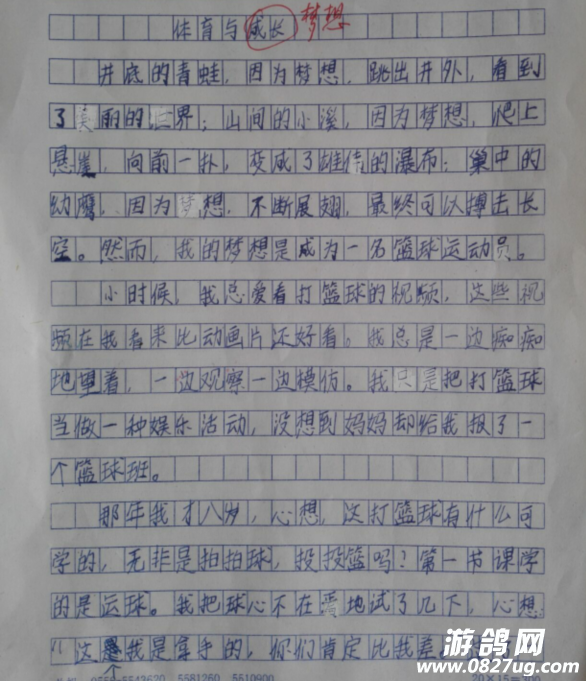 体育与成长 梦想
井底的青蛙，因为梦想，跳出井外，看到
了美丽的世界；山间的小溪，因为梦想，爬上
悬崖，向前一扑，变成了雄伟的瀑布；巢中的
幼鹰，因为梦想，不断展翅，最终可以搏击长
空。然而，我的梦想是成为一名篮球运动员。
小时候，我总爱看打篮球的视频，这些视
频在我看来比动画片还好看。我总是一边痴痴
地望着，一边观察一边模仿。我只是把打篮球
当做一种娱乐活动，没想到妈妈却给我报了一
个篮球班。
那年我才八岁，心想，这打篮球有什么可
学的，无非是拍拍球，投投篮吗？第一节课学
的是运球。我把球心不在焉地试了几下，心想
“这是我是拿手的，你们肯定比我差
5581260 5510900
20×15=300
游鸽网
www.0827ug.com